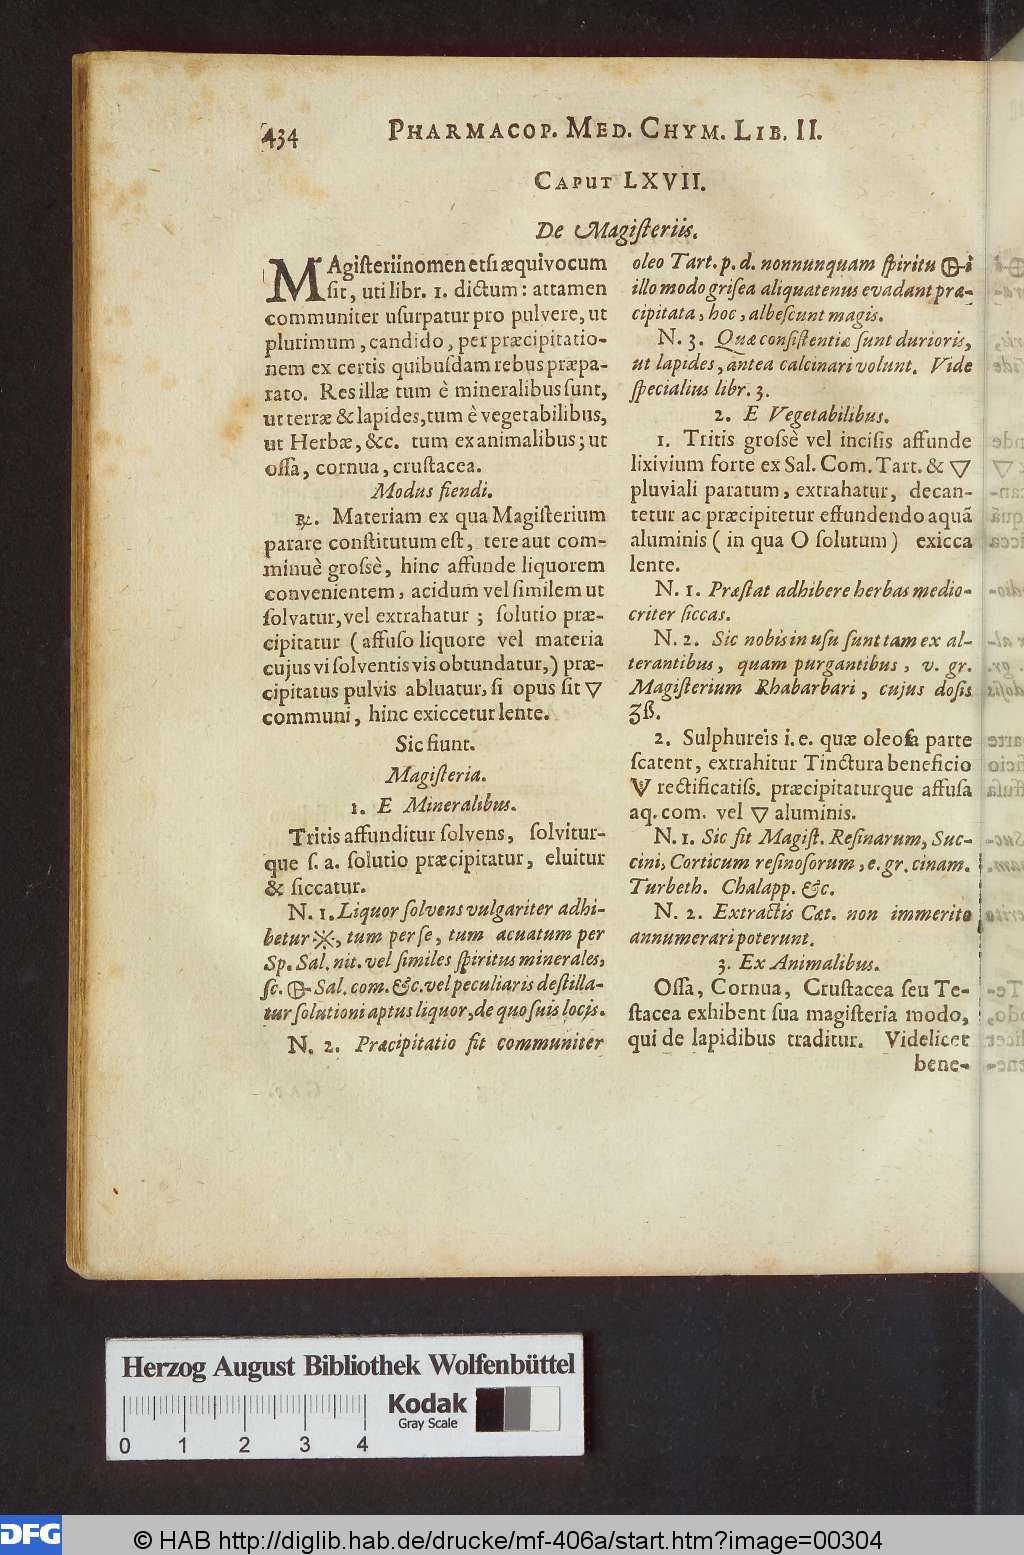 434 PHARMACOP. MED. CHYM. LIB. II.
CAPUT LXVII.
De Magiſteriis.
MAgiſterii nomen etſi æquivocum
ſit, uti libr. 1. dictum: attamen
communiter uſurpatur pro pulvere, ut
plurimum, candido, per præcipitatio-
nem ex certis quibuſdam rebus præpa-
rato. Res illæ tum è mineralibus ſunt,
ut terræ & lapides, tum è vegetabilibus,
ut Herbæ, &c. tum ex animalibus; ut
oſſa, cornua, cruſtacea.
Modus fiendi.
℞. Materiam ex qua Magiſterium
parare conſtitutum eſt, tere aut com-
minuè groſsè, hinc affunde liquorem
convenientem, acidum vel ſimilem ut
ſolvatur, vel extrahatur; ſolutio præ-
cipitatur (affuſo liquore vel materia
cujus vi ſolventis vis obtundatur,) præ-
cipitatus pulvis abluatur, ſi opus ſit 🜄
communi, hinc exiccetur lente.
Sic fiunt.
Magiſteria.
1. E Mineralibus.
Tritis affunditur ſolvens, ſolvitur-
que ſ. a. ſolutio præcipitatur, eluitur
& ſiccatur.
N. 1. Liquor ſolvens vulgariter adhi-
betur ※, tum per ſe, tum acuatum per
Sp. Sal. nit. vel ſimiles ſpiritus minerales,
ſc. 🜖 Sal. com. &c. vel peculiaris deſtilla-
tur ſolutioni aptus liquor, de quo ſuis locis.
N. 2. Præcipitatio fit communiter
oleo Tart. p. d. nonnunquam ſpiritu 🜖i
illo modo griſea aliquatenus evadant præ-
cipitata, hoc, albeſcunt magis.
N. 3. Quæ conſiſtentiæ ſunt durioris,
ut lapides, antea calcinari volunt. Vide
ſpecialius libr. 3.
2. E Vegetabilibus.
1. Tritis groſsè vel inciſis affunde
lixivium forte ex Sal. Com. Tart. & 🜄
pluviali paratum, extrahatur, decan-
tetur ac præcipitetur effundendo aquã
aluminis (in qua O ſolutum) exicca
lente.
N. 1. Præſtat adhibere herbas medio-
criter ſiccas.
N. 2. Sic nobis in uſu ſunt tam ex al-
terantibus, quam purgantibus, v. gr.
Magiſterium Rhabarbari, cujus doſis
ʒß.
2. Sulphureis i. e. quæ oleoſa parte
ſcatent, extrahitur Tinctura beneficio
🜇 rectificatiſs. præcipitaturque affuſa
aq. com. vel 🜄 aluminis.
N. 1. Sic fit Magiſt. Reſinarum, Suc-
cini, Corticum reſinoſorum, e. gr. cinam.
Turbeth. Chalapp. &c.
N. 2. Extractis Cat. non immerito
annumerari poterunt.
3. Ex Animalibus.
Oſſa, Cornua, Cruſtacea ſeu Te-
ſtacea exhibent ſua magiſteria modo,
qui de lapidibus traditur. Videlicet
bene-
Herzog August Bibliothek Wolfenbüttel
Kodak
Gray Scale
0 1 2 3 4
DFG
© HAB http://diglib.hab.de/drucke/mf-406a/start.htm?image=00304